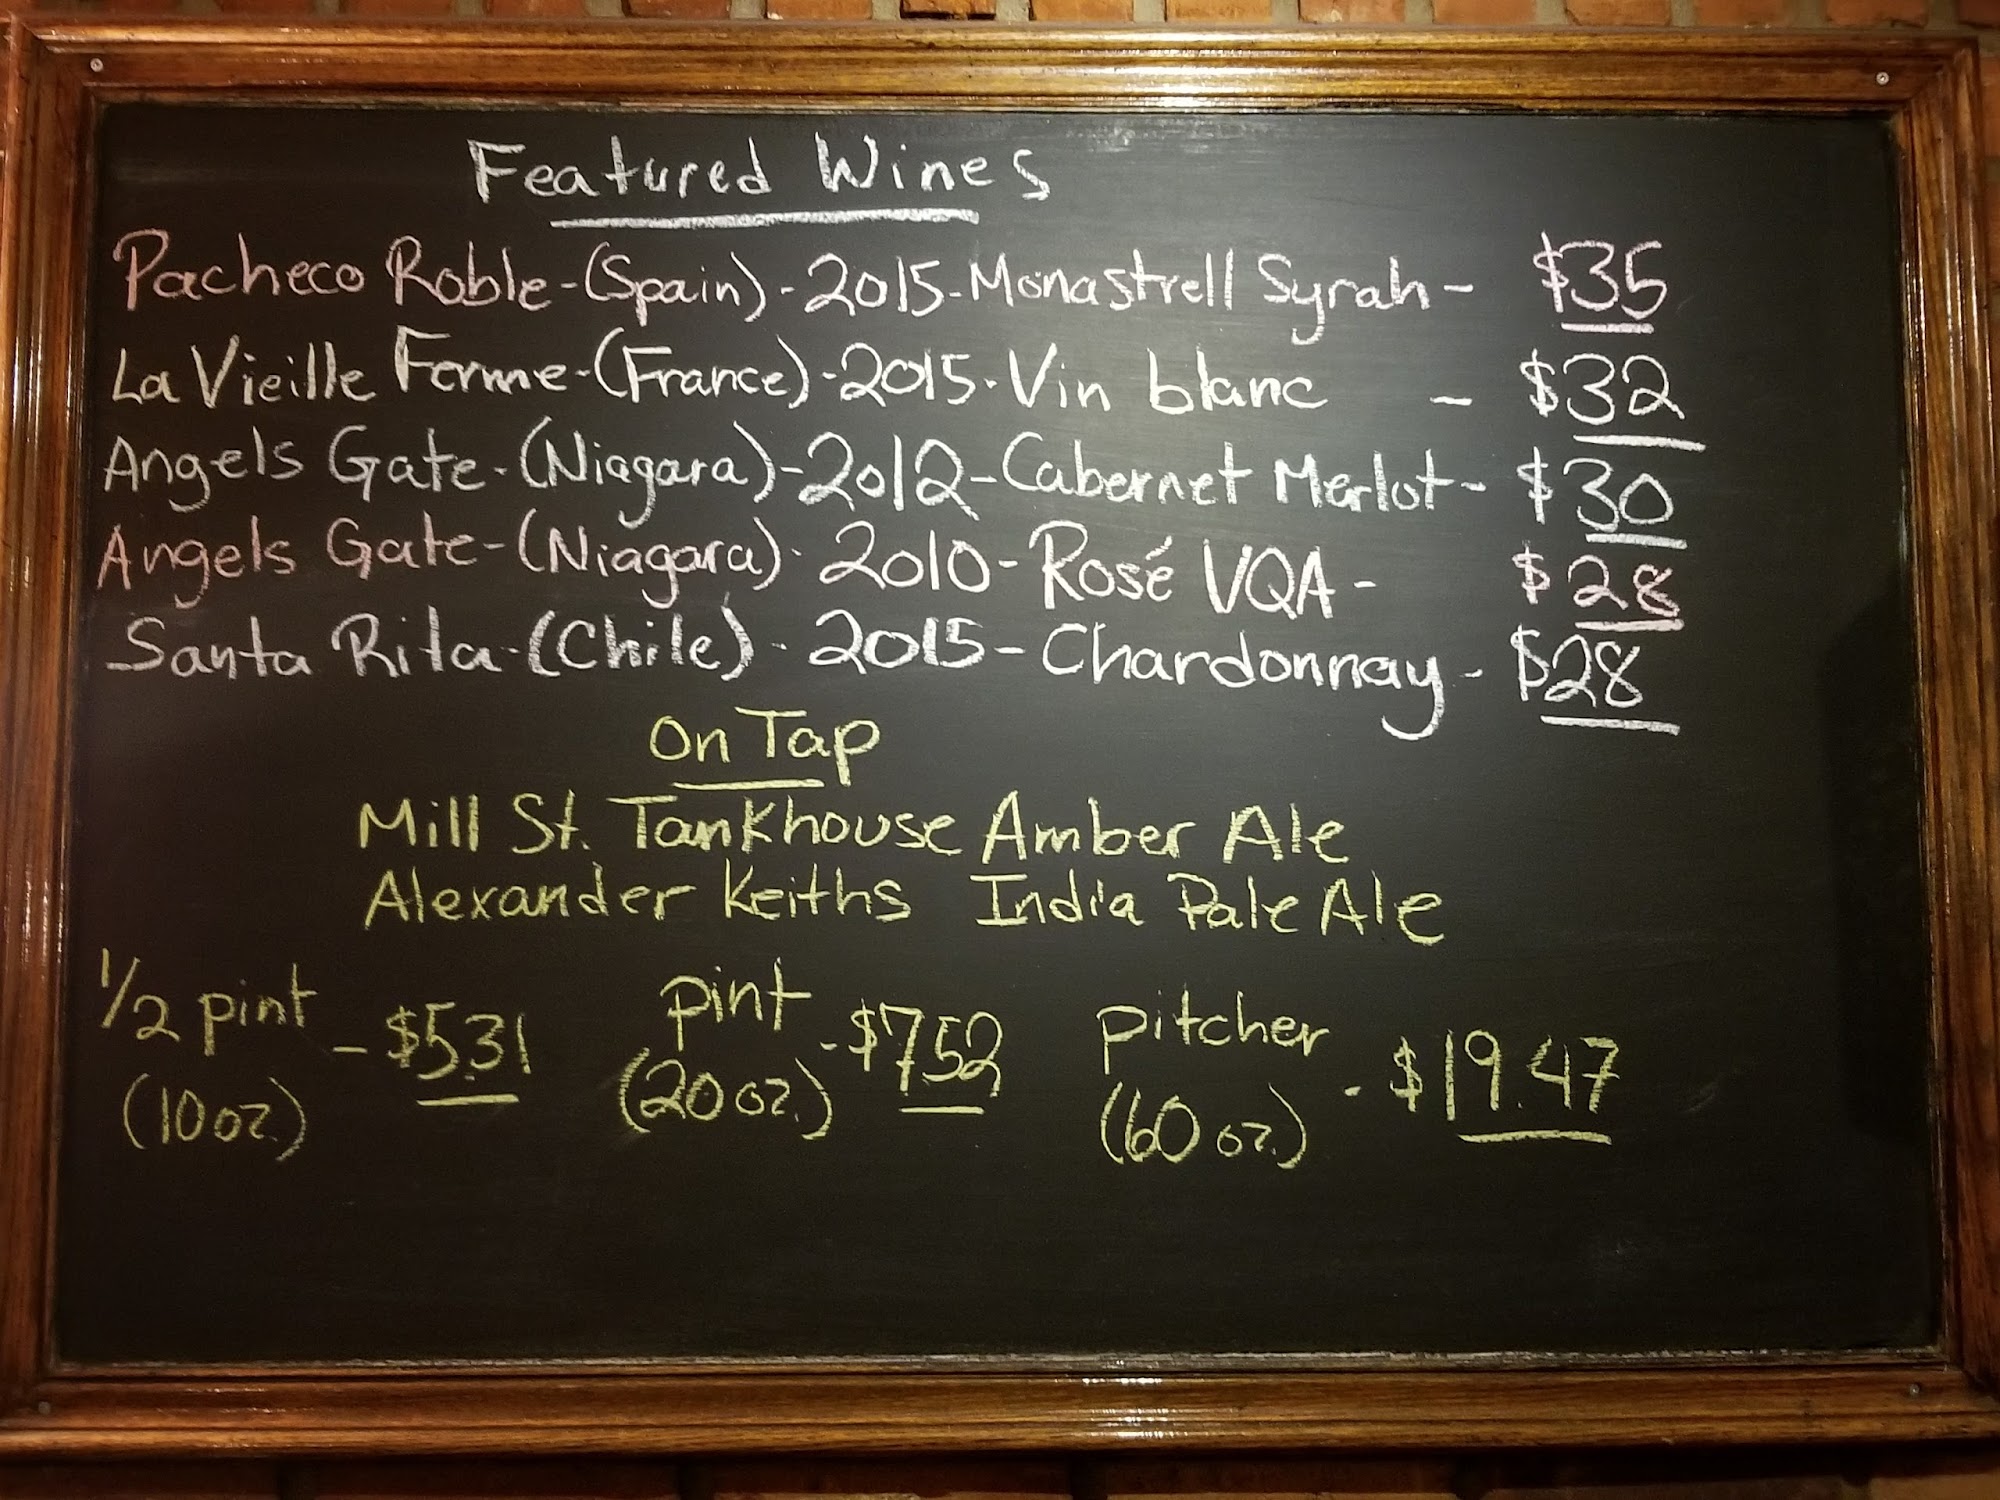 Featured Wines
Pacheco Roble-(Spain)-2015-Monastrell Syrah- $35
La Vieille Ferme-(France)-2015-Vin blanc - $32
Angels Gate-(Niagara)-2012-Cabernet Merlot- $30
Angels Gate-(Niagara)-2010-Rosé VQA- $28
Santa Rita-(Chile)-2015-Chardonnay- $28
On Tap
Mill St. Tankhouse Amber Ale
Alexander Keiths India Pale Ale
1/2 pint (10 oz.) - $5.31
pint (20 oz.) - $7.52
pitcher (60 oz.) - $19.47